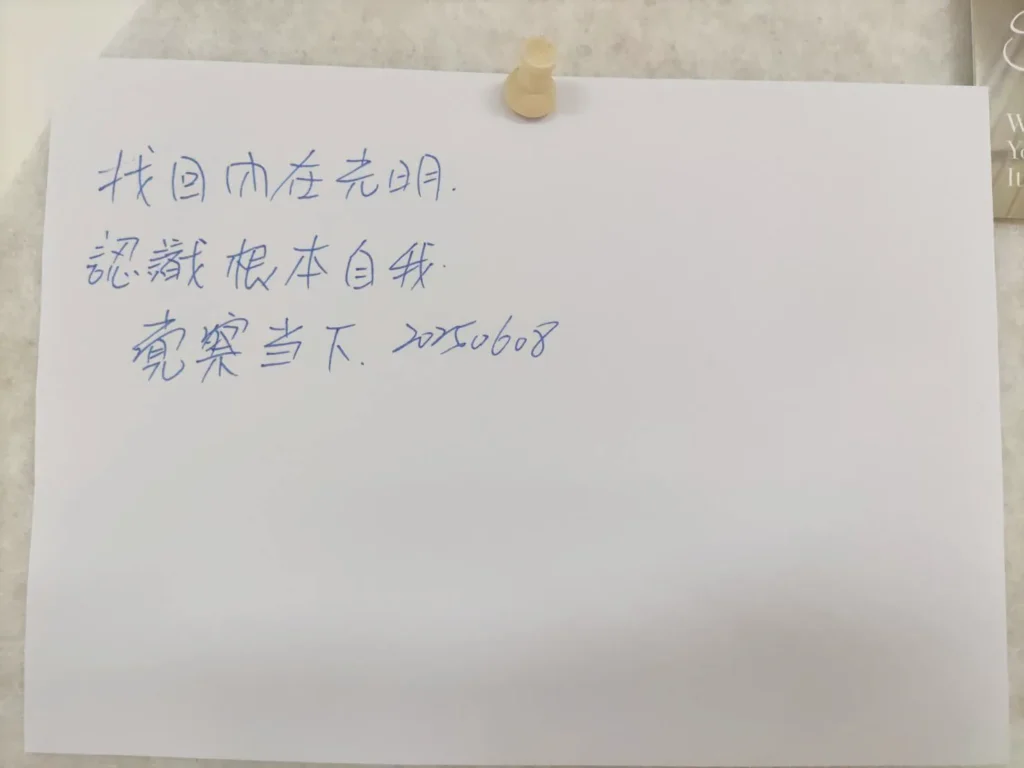 找回内在光明.
認識根本自我.
覚察当下. 20250608
S
W
Yo
It